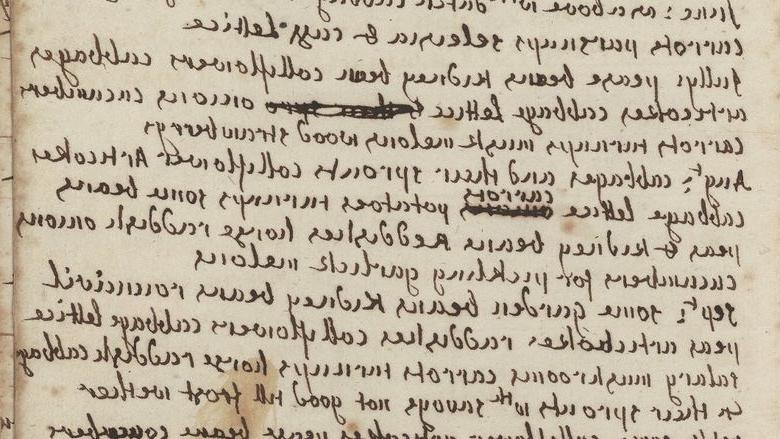 June: as above wth
carrots parsnyps & lettice
Jully: pease beans kidney bean collyflowers cabbages
artecokes cabbage lettice onions cucumbers
carrots turnyps musk melons wood strawberrys
Augt: cabbages and their sprouts collyflower Artecokes
carrots
cabbage lettice potatoes turnyps some beans
peas & kidney beane Reddishes horse raddish onions
cucumbers for pickling garlick melons
sept: some garden beans kidney beans rouncivil
peas artichokes raddishes collyflowers cabbage lettice
salary mushrooms carrots turnyps horse raddish cabbag
& their sprouts wth savoys not good till frost wether
pease beane